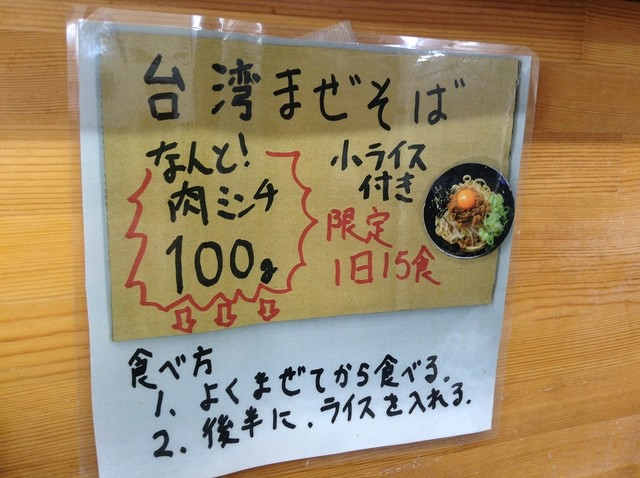 台湾まぜそば
なんと!
肉ミンチ
100g
小ライス
付き
限定
1日15食
食べ方
1. よくまぜてから食べる.
2. 後半に.ライスを入れる.